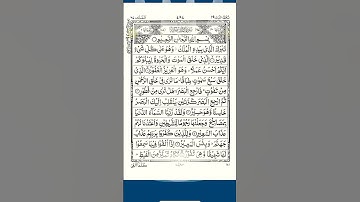 بِسْمِ اللّٰهِ الرَّحْمٰنِ الرَّحِيْمِ
تَبٰرَكَ الَّذِيْ بِيَدِهِ الْمُلْكُ وَهُوَ عَلٰى كُلِّ شَيْءٍ
قَدِيْرٌ الَّذِيْ خَلَقَ الْمَوْتَ وَالْحَيٰوةَ لِيَبْلُوَكُمْ
اَيُّكُمْ اَحْسَنُ عَمَلًا وَهُوَ الْعَزِيْزُ الْغَفُوْرُ الَّذِيْ
خَلَقَ سَبْعَ سَمٰوٰتٍ طِبَاقًا مَا تَرٰى فِيْ خَلْقِ الرَّحْمٰنِ
مِنْ تَفٰوُتٍ فَارْجِعِ الْبَصَرَ هَلْ تَرٰى مِنْ فُطُوْرٍ
ثُمَّ ارْجِعِ الْبَصَرَ كَرَّتَيْنِ يَنْقَلِبْ اِلَيْكَ الْبَصَرُ
خَاسِئًا وَّهُوَ حَسِيْرٌ وَلَقَدْ زَيَّنَّا السَّمَآءَ الدُّنْيَا
بِمَصَابِيْحَ وَجَعَلْنٰهَا رُجُوْمًا لِّلشَّيٰطِيْنِ وَاَعْتَدْنَا لَهُمْ
عَذَابَ السَّعِيْرِ وَلِلَّذِيْنَ كَفَرُوْا بِرَبِّهِمْ عَذَابُ
جَهَنَّمَ وَبِئْسَ الْمَصِيْرُ اِذَآ اُلْقُوْا فِيْهَا سَمِعُوْا
لَهَا شَهِيْقًا وَّهِيَ تَفُوْرُ تَكَادُ تَمَيَّزُ مِنَ الْغَيْظِ